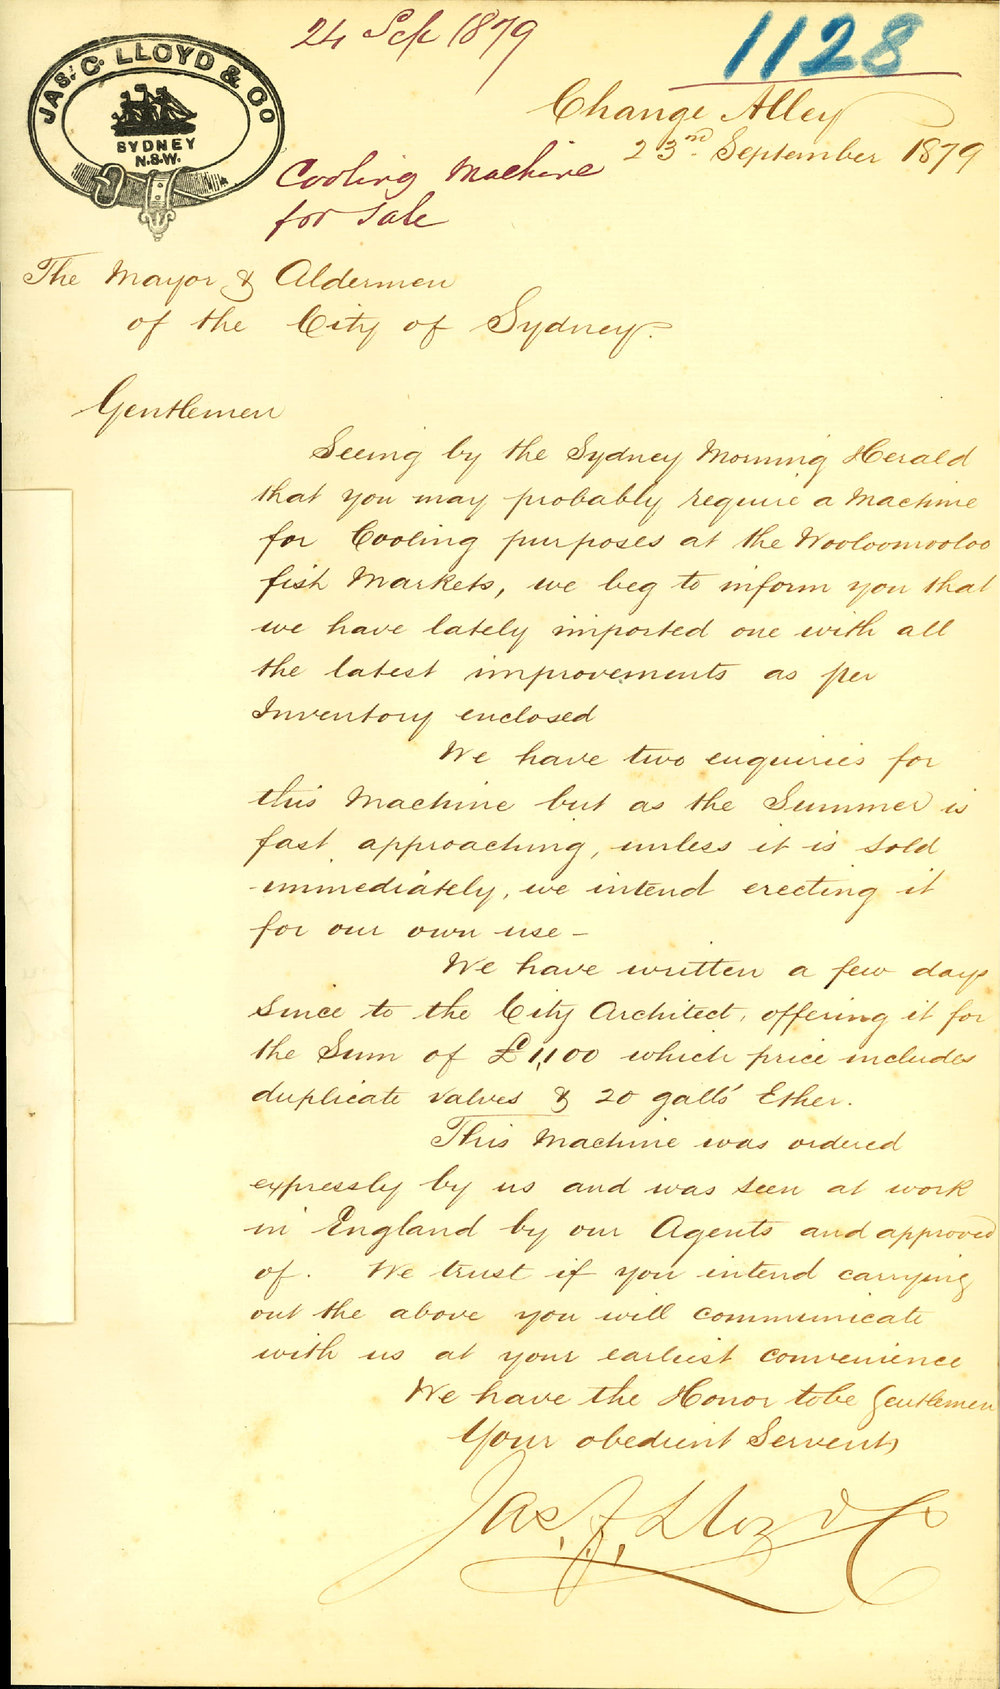 24 Sep 1879
1128
JAS. C. LLOYD & CO
SYDNEY
N.S.W.
Change Alley
23rd. September 1879
Cooling Machine
for Sale
The Mayor & Aldermen
of the City of Sydney.
Gentlemen
Seeing by the Sydney Morning Herald
that you may probably require a Machine
for Cooling purposes at the Wooloomooloo
fish Markets, we beg to inform you that
we have lately imported one with all
the latest improvements as per
Inventory enclosed
We have two enquiries for
this Machine but as the Summer is
fast approaching, unless it is sold
immediately, we intend erecting it
for our own use -
We have written a few days
since to the City Architect, offering it for
the Sum of £1,100 which price includes
duplicate valves & 20 galls' Ether.
This Machine was ordered
expressly by us and was seen at work
in England by our Agents and approved
of. We trust if you intend carrying
out the above you will communicate
with us at your earliest convenience
We have the Honor to be Gentlemen
Your obedient Servents
Jas. Lloyd & Co